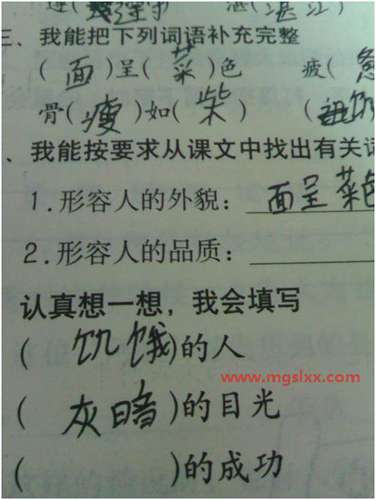 三、我能把下列词语补充完整
(面)呈(菜)色 疲(
骨(瘦)如(柴)
、我能按要求从课文中找出有关词
1.形容人的外貌：面呈菜色
2.形容人的品质：
认真想一想，我会填写
(饥饿)的人
www.mgslxx.com
(灰暗)的目光
( )的成功